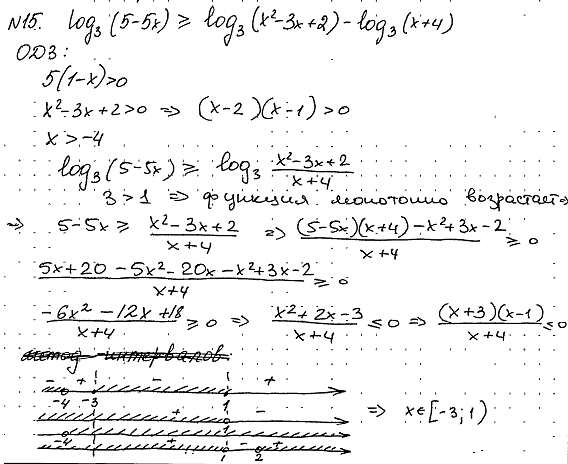 №15. log₃(5-5x) ≥ log₃(x²-3x+2) - log₃(x+4)
ОДЗ:
5(1-x)>0
x²-3x+2>0 => (x-2)(x-1)>0
x>-4
log₃(5-5x) ≥ log₃ (x²-3x+2)/(x+4)
3>1 => функция монотонно возрастает =>
=> 5-5x ≥ (x²-3x+2)/(x+4) => ((5-5x)(x+4)-x²+3x-2)/(x+4) ≥ 0
(5x+20-5x²-20x-x²+3x-2)/(x+4) ≥ 0
(-6x²-12x+18)/(x+4) ≥ 0 => (x²+2x-3)/(x+4) ≤ 0 => ((x+3)(x-1))/(x+4) ≤ 0
метод интервалов
- + - +
-4 -3 1
+ -
=> x∈[-3;1)
1
-4
+ - +
1 2